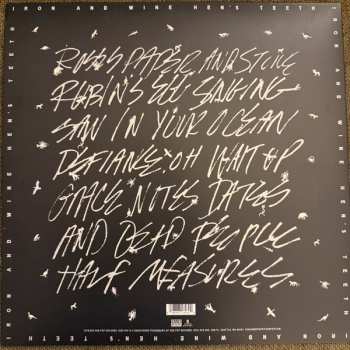 IRON AND WINE HEN'S TEETH
ROSES PAPER AND STONE
ROBIN'S EGG SINGING
SAW IN YOUR OCEAN
DEFIANCE, OH WAIT UP
GRACE NOTES DATES
AND DEAD PEOPLE
HALF MEASURES
IRON AND WINE HEN'S TEETH
IRON AND WINE HEN'S TEETH
IRON AND WINE HEN'S TEETH